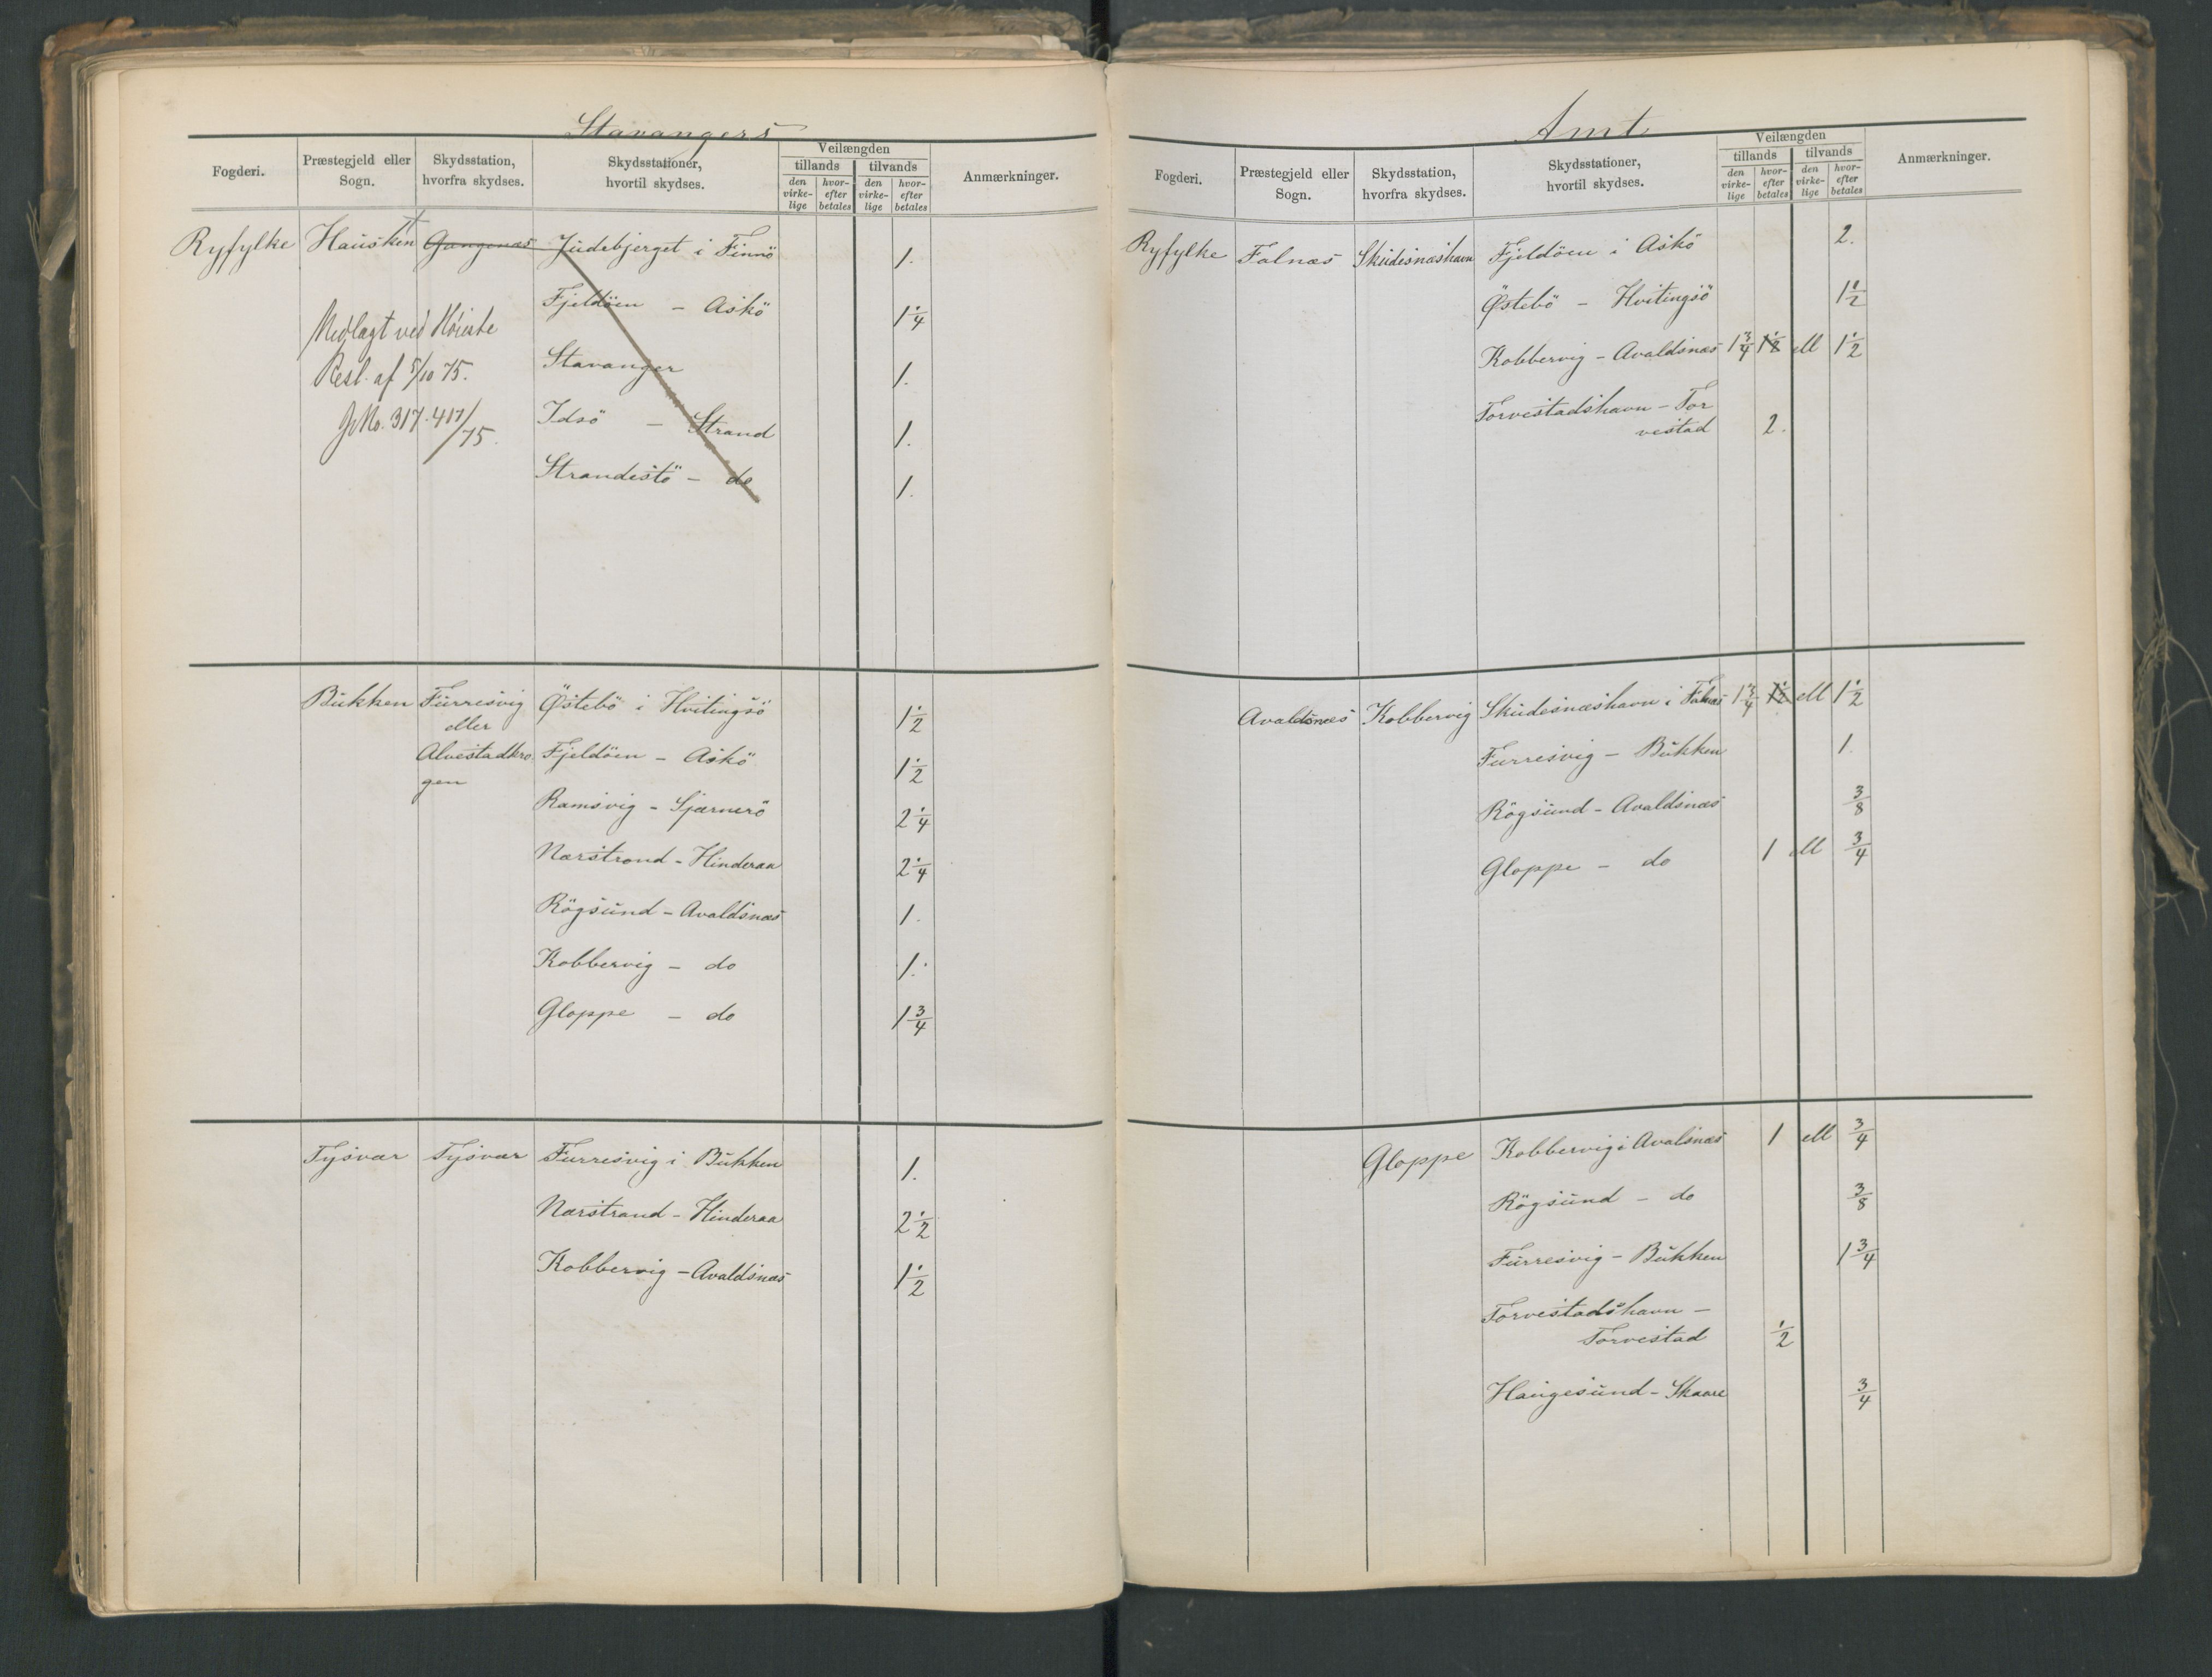 Stavangers
Fogderi. Præstegjeld eller Sogn. Skydsstation, hvorfra skydses. Skydsstationer, hvortil skydses. Veilængden tillands tilvands den virkelige hvorefter betales den virkelige hvorefter betales Anmærkninger.
Ryfylke Hausken Gangenæs Judebjerget i Finnö 1.
Fjeldöen - Askö 1 1/4
Nedlagt ved Höieste
Stavanger 1.
Resl. af 5/10 75.
Idsö - Strand 1.
J No. 317. 417/75.
Strandestö - do 1.
Bukken Furresvig Östebö i Hvitingsö 1 1/2
eller
Alvestadkro Fjeldöen - Askö 1 1/2
gen
Ramsvig - Sjærnerö 2 1/4
Nærstrand - Hinderaa 2 1/4
Rögsund - Avaldsnæs 1.
Kobbervig - do 1.
Gloppe - do 1 3/4
Tysvær Tysvær Furresvig i Bukken 1.
Nærstrand - Hinderaa 2 1/2
Kobbervig - Avaldsnæs 1 1/2
Amt
Fogderi. Præstegjeld eller Sogn. Skydsstation, hvorfra skydses. Skydsstationer, hvortil skydses. Veilængden tillands tilvands den virkelige hvorefter betales den virkelige hvorefter betales Anmærkninger.
Ryfylke Falnæs Skudesnæshavn Fjeldöen i Askö 2.
Östebö - Hvitingsö 1 1/2
Kobbervig - Avaldsnæs 1 3/4 1 1/2 ell 1 1/2
Torvestadshavn - Tor
vestad 2.
Avaldsnæs Kobbervig Skudesnæshavn i Falnæs 1 3/4 1 1/2 ell 1 1/2
Furresvig - Bukken 1.
Rögsund - Avaldsnæs 3/8
Gloppe - do 1 ell 3/4
Gloppe Kobbervig i Avalsnæs 1 ell 3/4
Rögsund - do 3/8
Furresvig - Bukken 1 3/4
Torvestadshavn -
Torvestad 1/2
Haugesund - Skaare 3/4